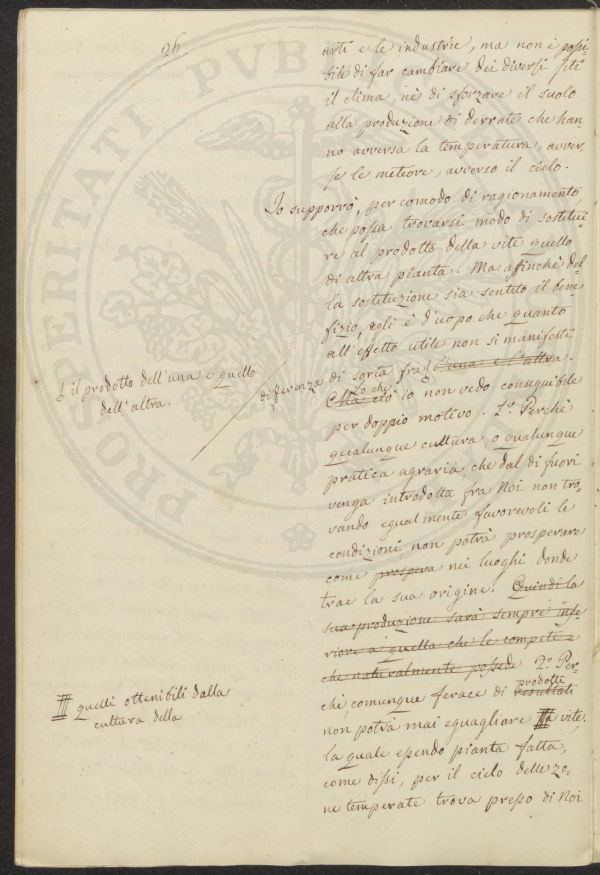 26
arti e le industrie, ma non è possi-
bile di far cambiare dei diversi siti
il clima, nè di sforzare il suolo
alla produzione di derrate che han-
no avversa la temperatura, avver-
se le meteore, avverso il cielo.
Io supporrò, per comodo di ragionamento,
che possa trovarsi modo di sostitui-
re al prodotto della vite quello
di altra pianta. Ma affinchè del-
la sostituzione sia sentito il bene-
fizio, egli è d'uopo che quanto
all'effetto utile non si manifesti
differenza di sorta fra l'una e l'altra.
il prodotto dell'una e quello
dell'altra.
Ma ciò Lo che io non vedo conseguibile
per doppio motivo. 1.º Perchè
qualunque cultura, o qualunque
pratica agraria, che dal di fuori
venga introdotta fra Noi non tro-
vando egualmente favorevoli le
condizioni, non potrà prosperare
come prospera nei luoghi donde
trae la sua origine. Quindi la
sua produzione sarà sempre infe-
riore a quella che le compete e
che naturalmente possede 2.º Per-
chè, comunque ferace di resultati prodotti
non potrà mai eguagliare la vite,
quelli ottenibili dalla
cultura della
la quale essendo pianta fatta,
come dissi, per il cielo delle zo-
ne temperate trova presso di Noi
PROSPERITATI PUB